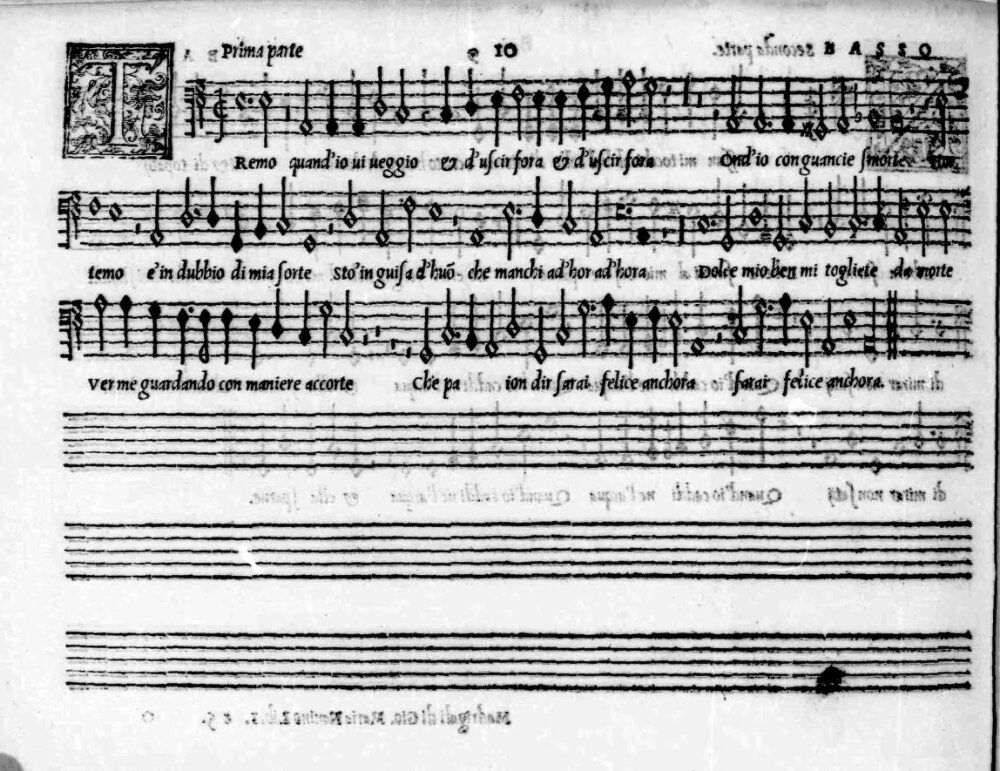 Prima parte 10 BASSO
T Remo quand'io ui ueggio & d'uscir fora & d'uscir fora Ond'io con guancie smorte
temo e'in dubbio di mia sorte Sto'in guisa d'huõ che manchi ad'hor ad'hora Dolce mio ben mi togliete da morte
Ver me guardando con maniere accorte Che pa ion dir sarai felice anchora sarai felice anchora.